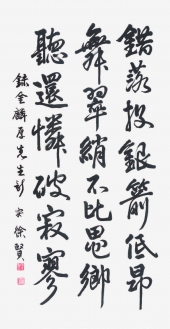 錯落投銀箭低昂
舞翠綃不比愚鄉
聽還憐破寂寥
錄金麟厚先生新
徐賢